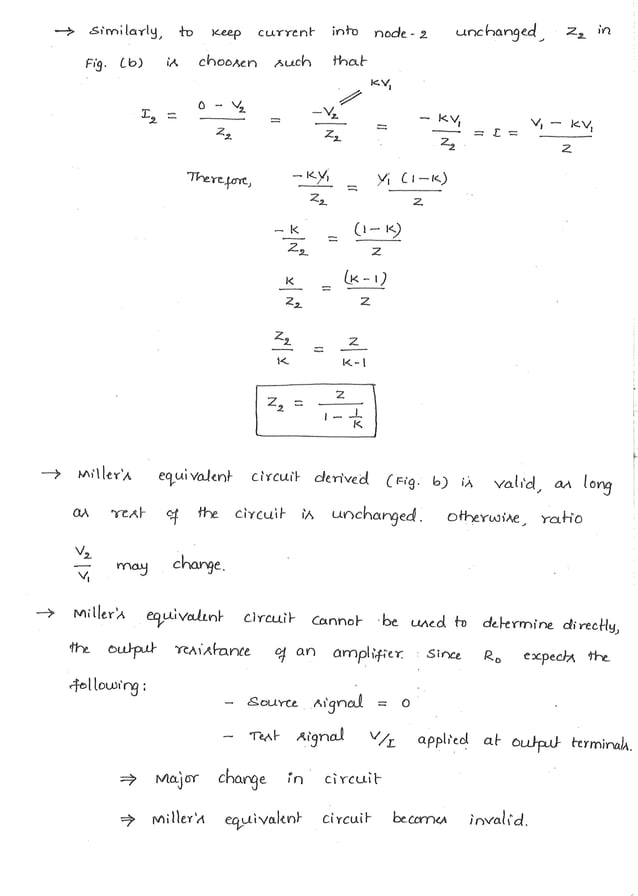 → Similarly, to keep current into node-2 unchanged, Z₂ in
Fig. (b) is choosen such that
KV₁
I₂ = (0 - V₂)/Z₂ = -V₂/Z₂ = -KV₁/Z₂ = I = (V₁ - KV₁)/Z
Therefore, -KV₁/Z₂ = V₁(1-K)/Z
-K/Z₂ = (1-K)/Z
K/Z₂ = (K-1)/Z
Z₂/K = Z/(K-1)
Z₂ = Z/(1 - 1/K)
→ Miller's equivalent circuit derived (Fig. b) is valid, as long
as rest of the circuit is unchanged. Otherwise, ratio
V₂/V₁ may change.
→ Miller's equivalent circuit cannot be used to determine directly,
the output resistance of an amplifier. Since R₀ expects the
following:
- Source signal = 0
- Test signal V/I applied at output terminals.
⇒ Major change in circuit
⇒ Miller's equivalent circuit becomes invalid.